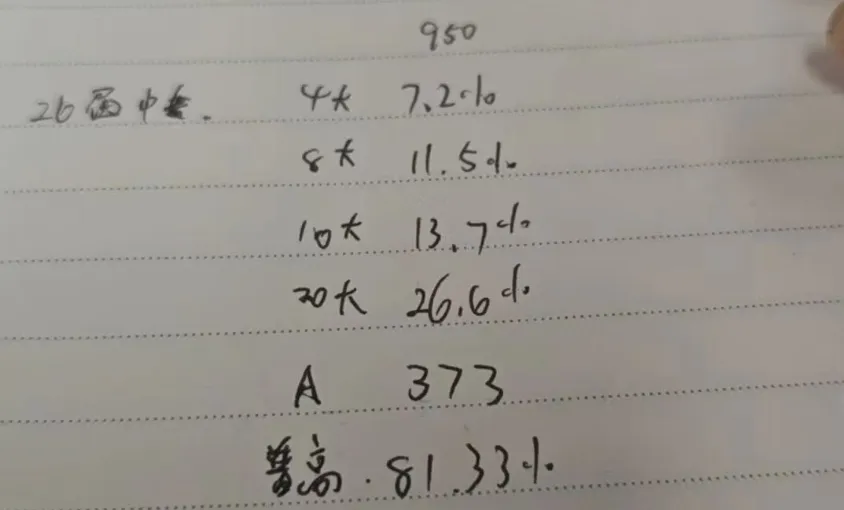 950
26届中考.
4大 7.2%
8大 11.5%
10大 13.7%
20大 26.6%
A 373
普高.81.33%